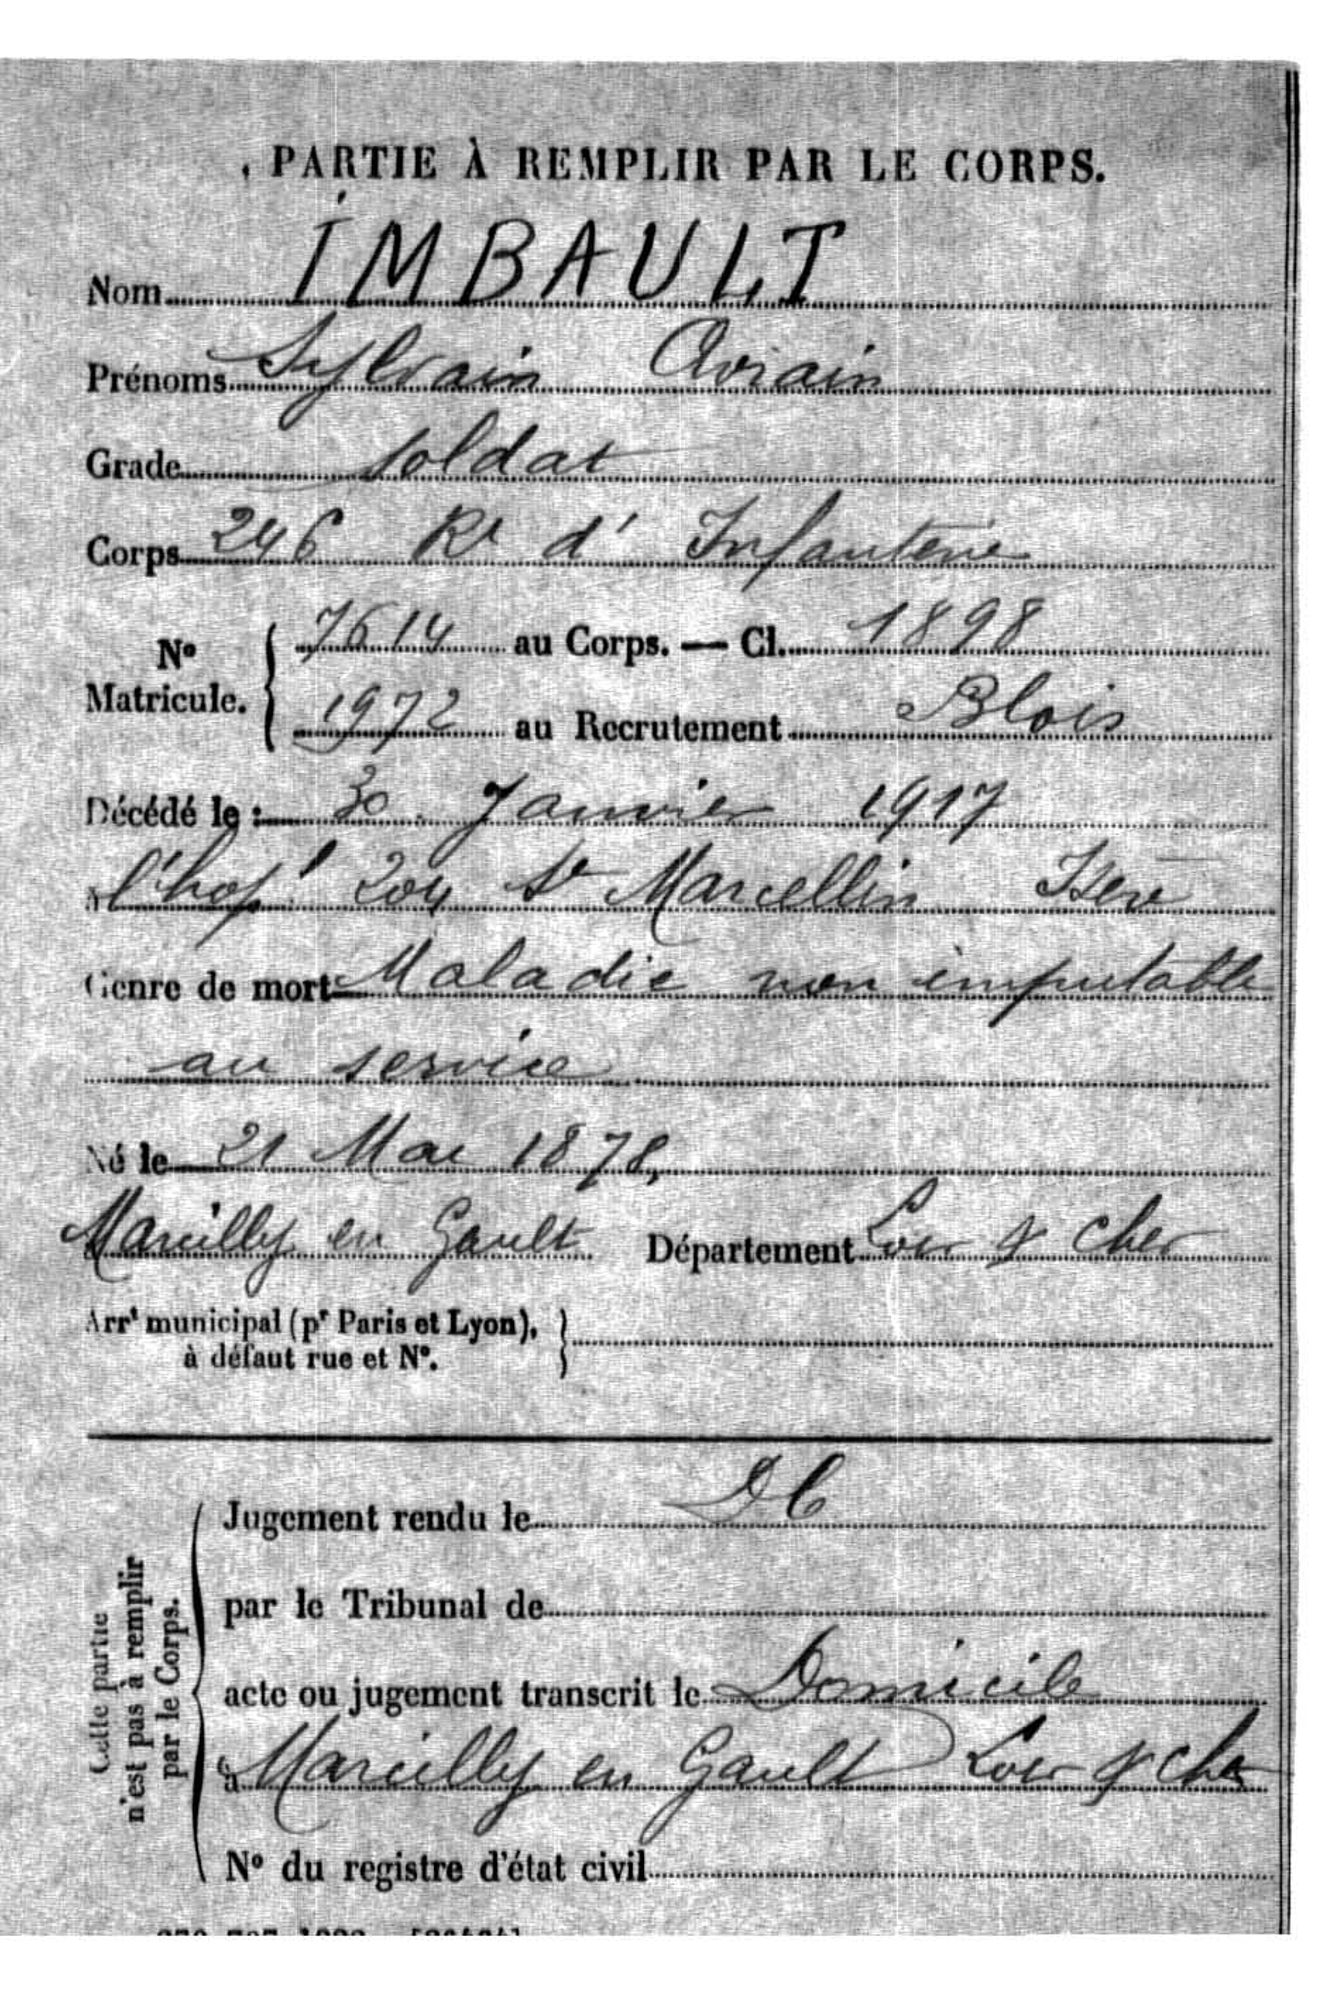 PARTIE À REMPLIR PAR LE CORPS.
Nom IMBAULT
Prénoms Sylvain Avrain
Grade Soldat
Corps 246 Rt d'Infanterie
N° Matricule. { 7614 au Corps. — Cl. 1898
1972 au Recrutement Blois
Décédé le : 30 Janvier 1917
à l'hopl 204 St Marcellin Isère
Genre de mort Maladie non imputable
au service
Né le 21 Mai 1878
Marcilly en Gault Département Loir & Cher
Arrt municipal (pr Paris et Lyon), à défaut rue et N°. }
Cette partie n'est pas à remplir par le Corps.
Jugement rendu le DC
par le Tribunal de
acte ou jugement transcrit le Domicile
à Marcilly en Gault Loir & Cher
N° du registre d'état civil